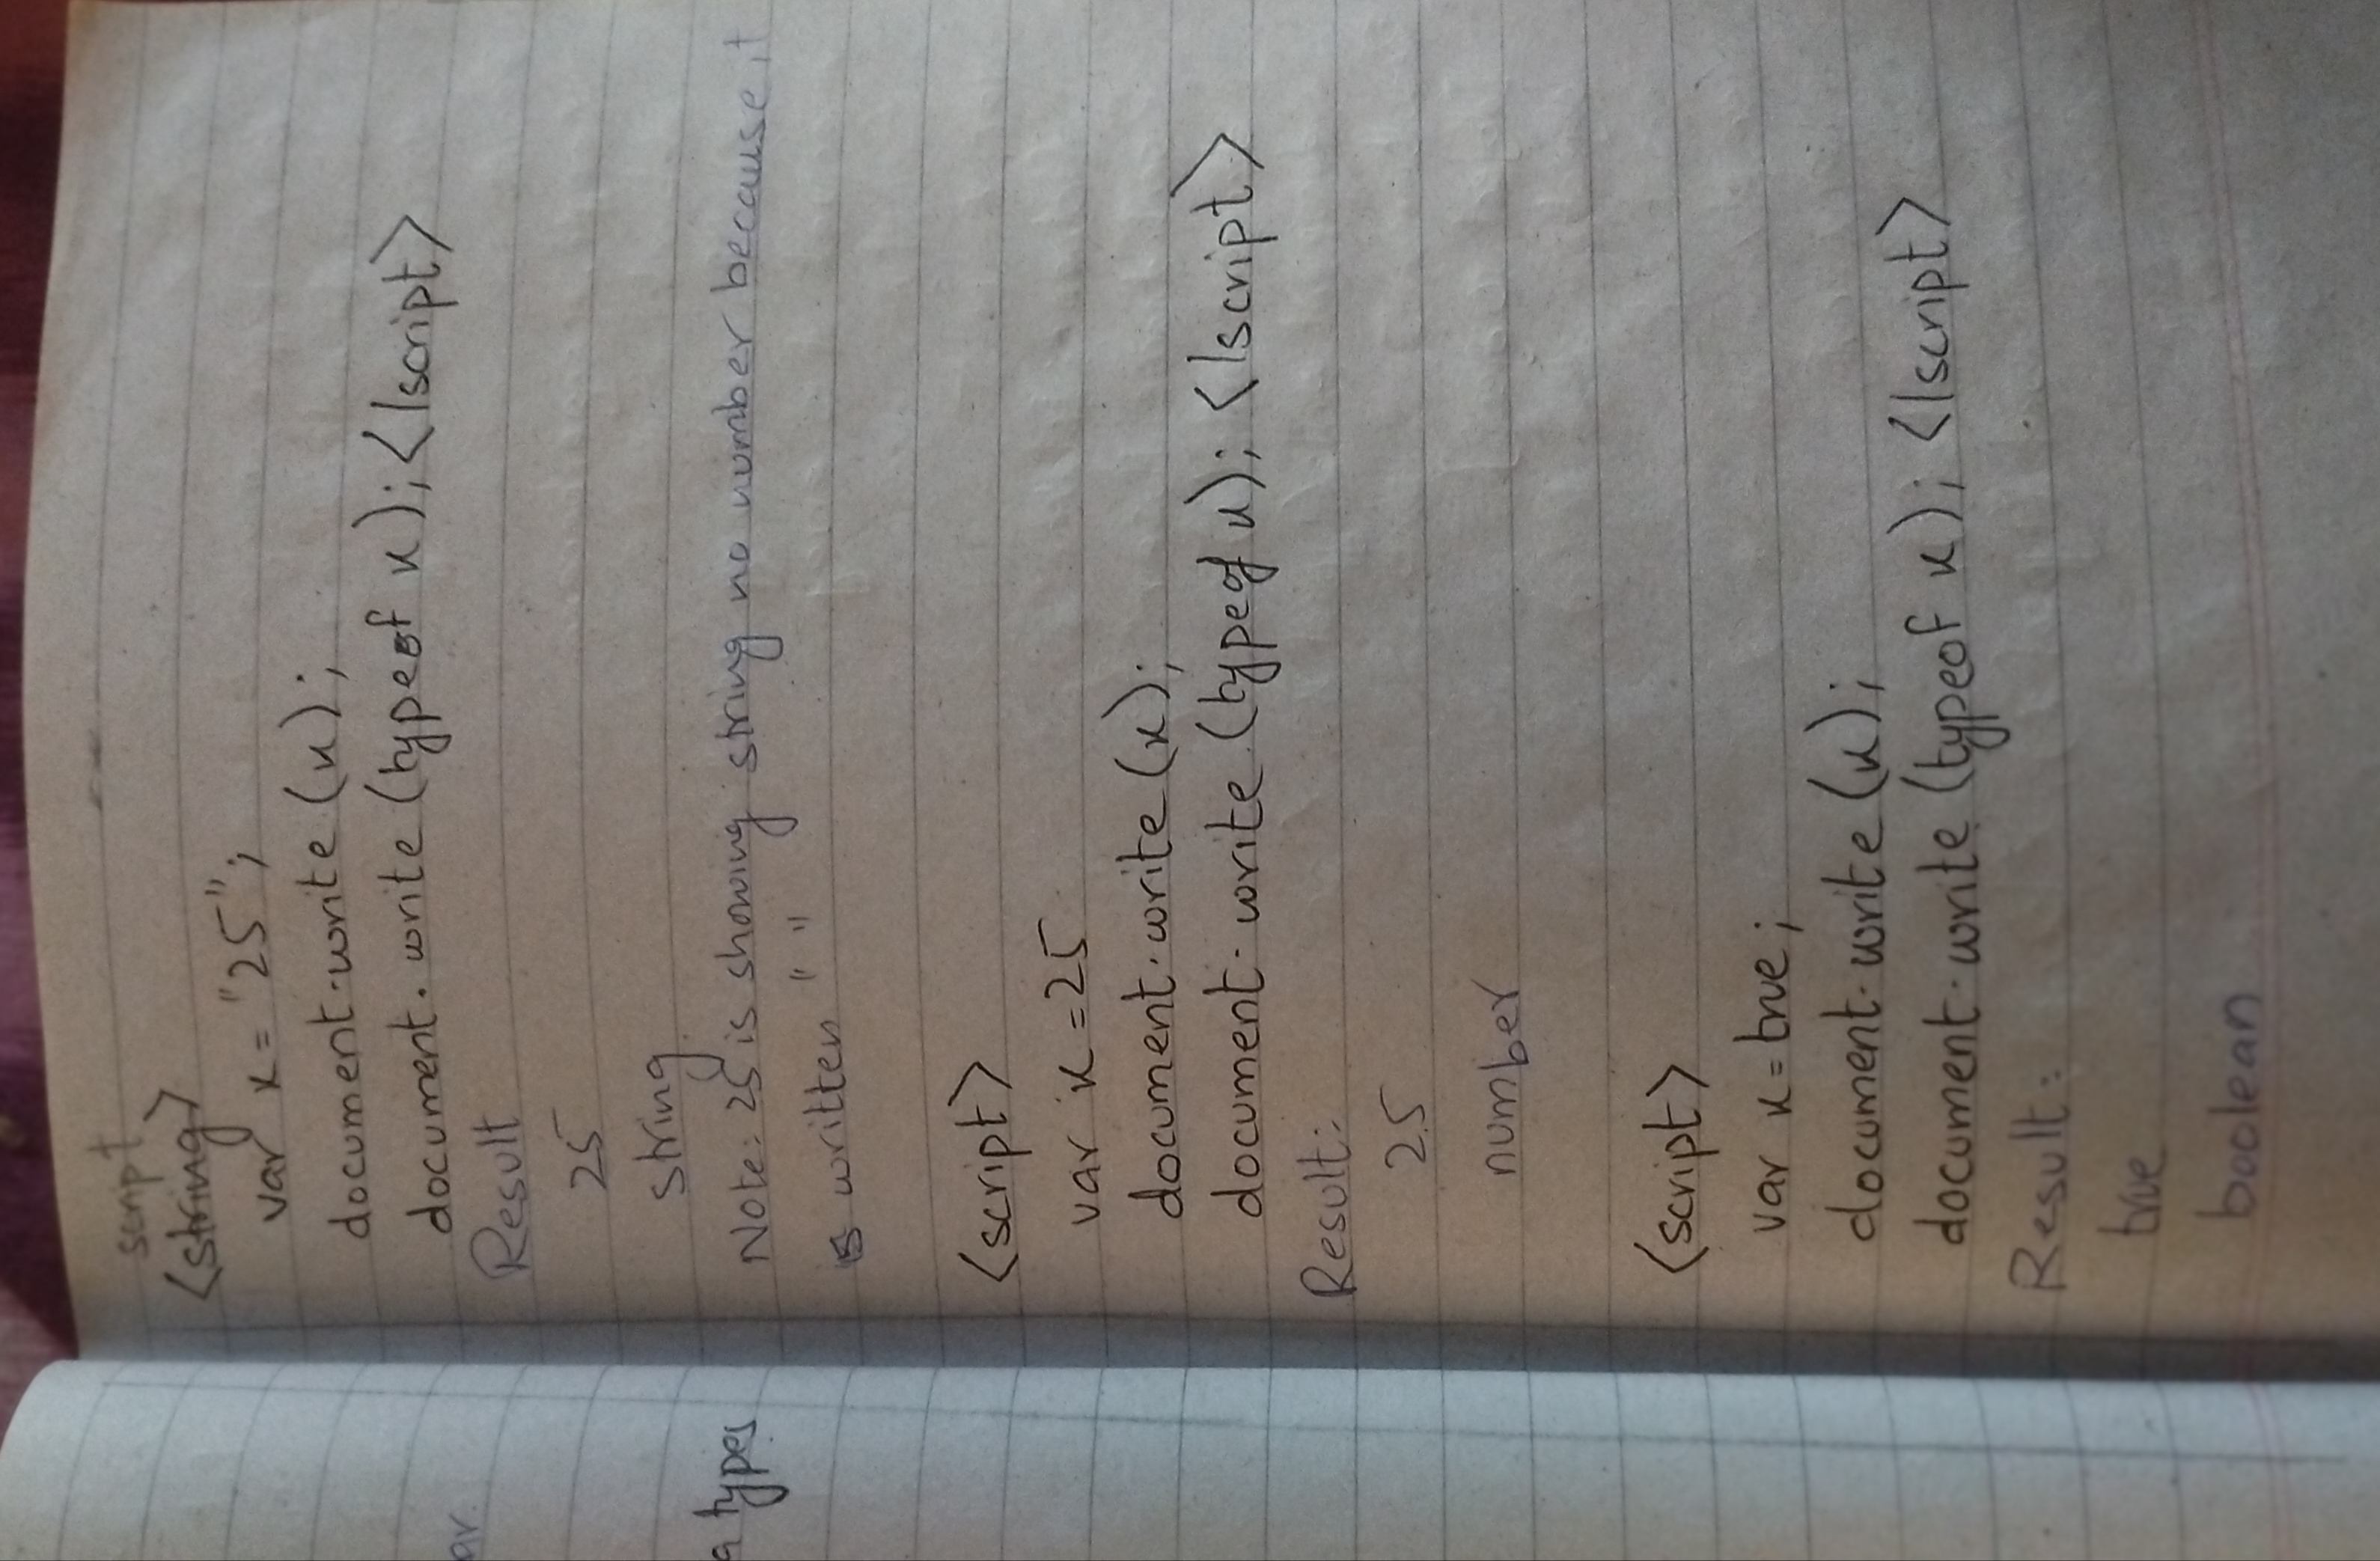 script
<string>
var x = "25";
document.write (x);
document.write (typeof x); </script>
Result
25
string
Note: 25 is showing string no number because it
is written " "
<script>
var x = 25
document.write (x);
document.write (typeof x); </script>
Result:
25
number
<script>
var x = true;
document.write (x);
document.write (typeof x); </script>
Result:
true
boolean
ar
a types